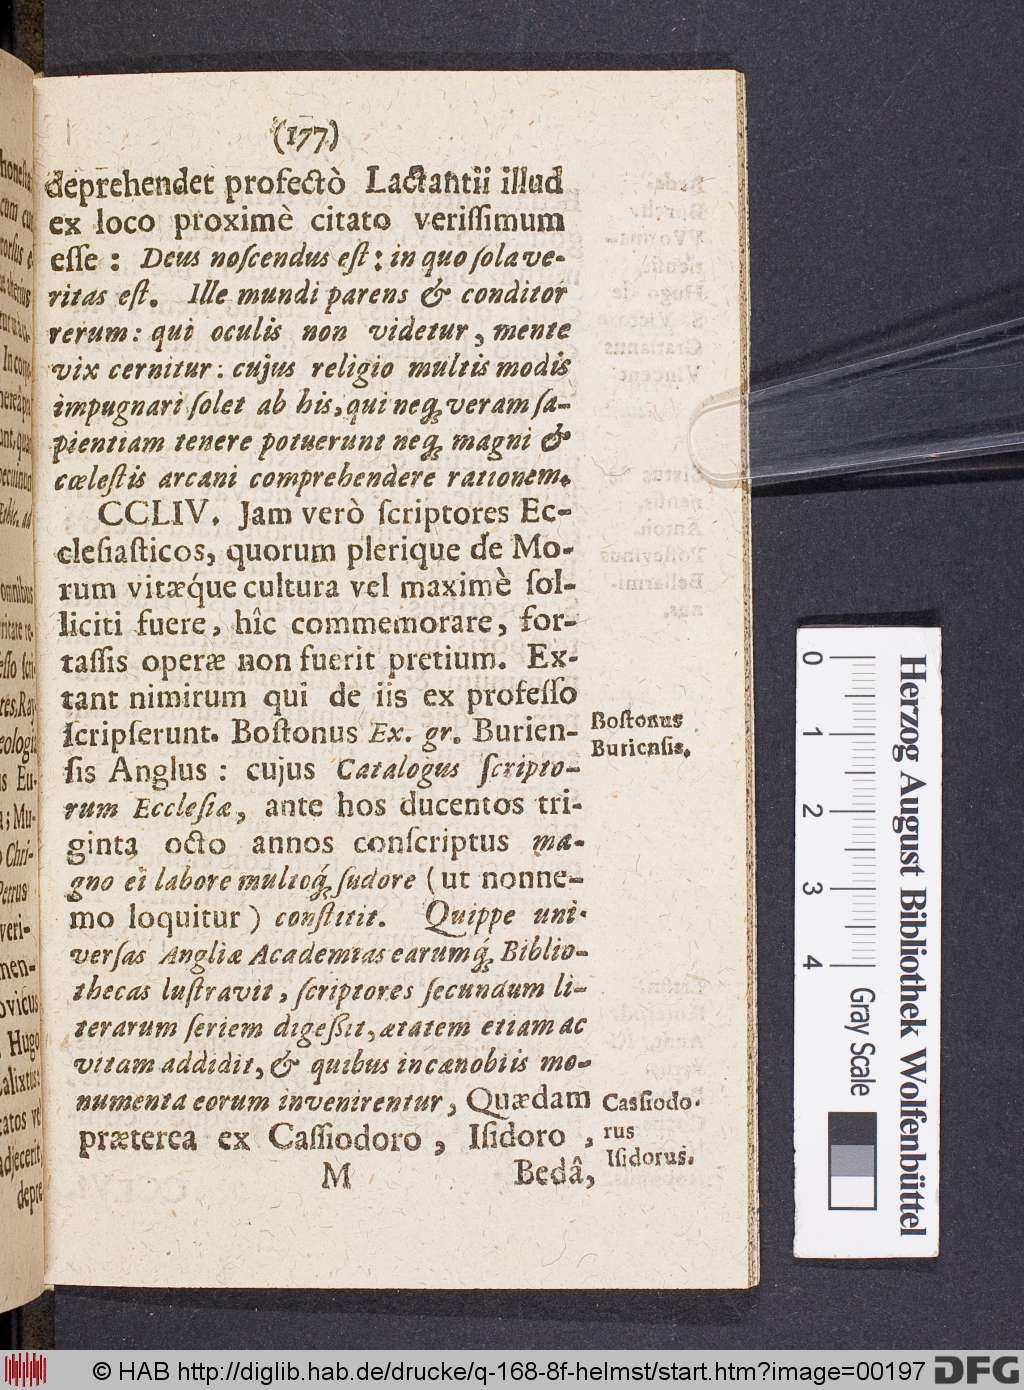 (177)
deprehendet profectò Lactantii illud
ex loco proximè citato verissimum
esse : Deus noscendus est : in quo sola ve-
ritas est. Ille mundi parens & conditor
rerum : qui oculis non videtur, mente
vix cernitur : cujus religio multis modis
impugnari solet ab his, qui neq; veram sa-
pientiam tenere potuerunt neq; magni &
cœlestis arcani comprehendere rationem.
CCLIV. Jam verò scriptores Ec-
clesiasticos, quorum plerique de Mo-
rum vitæque cultura vel maximè sol-
liciti fuere, hîc commemorare, for-
tassis operæ non fuerit pretium. Ex-
tant nimirum qui de iis ex professo
scripserunt. Bostonus Ex. gr. Burien-
sis Anglus : cujus Catalogus scripto-
rum Ecclesiæ, ante hos ducentos tri-
ginta octo annos conscriptus ma-
gno ei labore multoq́; sudore (ut nonne-
mo loquitur) constitit. Quippe uni-
versas Angliæ Academias earumq́; Biblio-
thecas lustravit, scriptores secundum li-
terarum seriem digessit, ætatem etiam ac
vitam addidit, & quibus in cœnobiis mo-
numenta eorum invenirentur, Quædam
præterea ex Cassiodoro, Isidoro,
M Bedâ,
Bostonus
Buriensis.
Cassiodo-
rus
Isidorus.
0 1 2 3 4 Gray Scale
Herzog August Bibliothek Wolfenbüttel
© HAB http://diglib.hab.de/drucke/q-168-8f-helmst/start.htm?image=00197 DFG